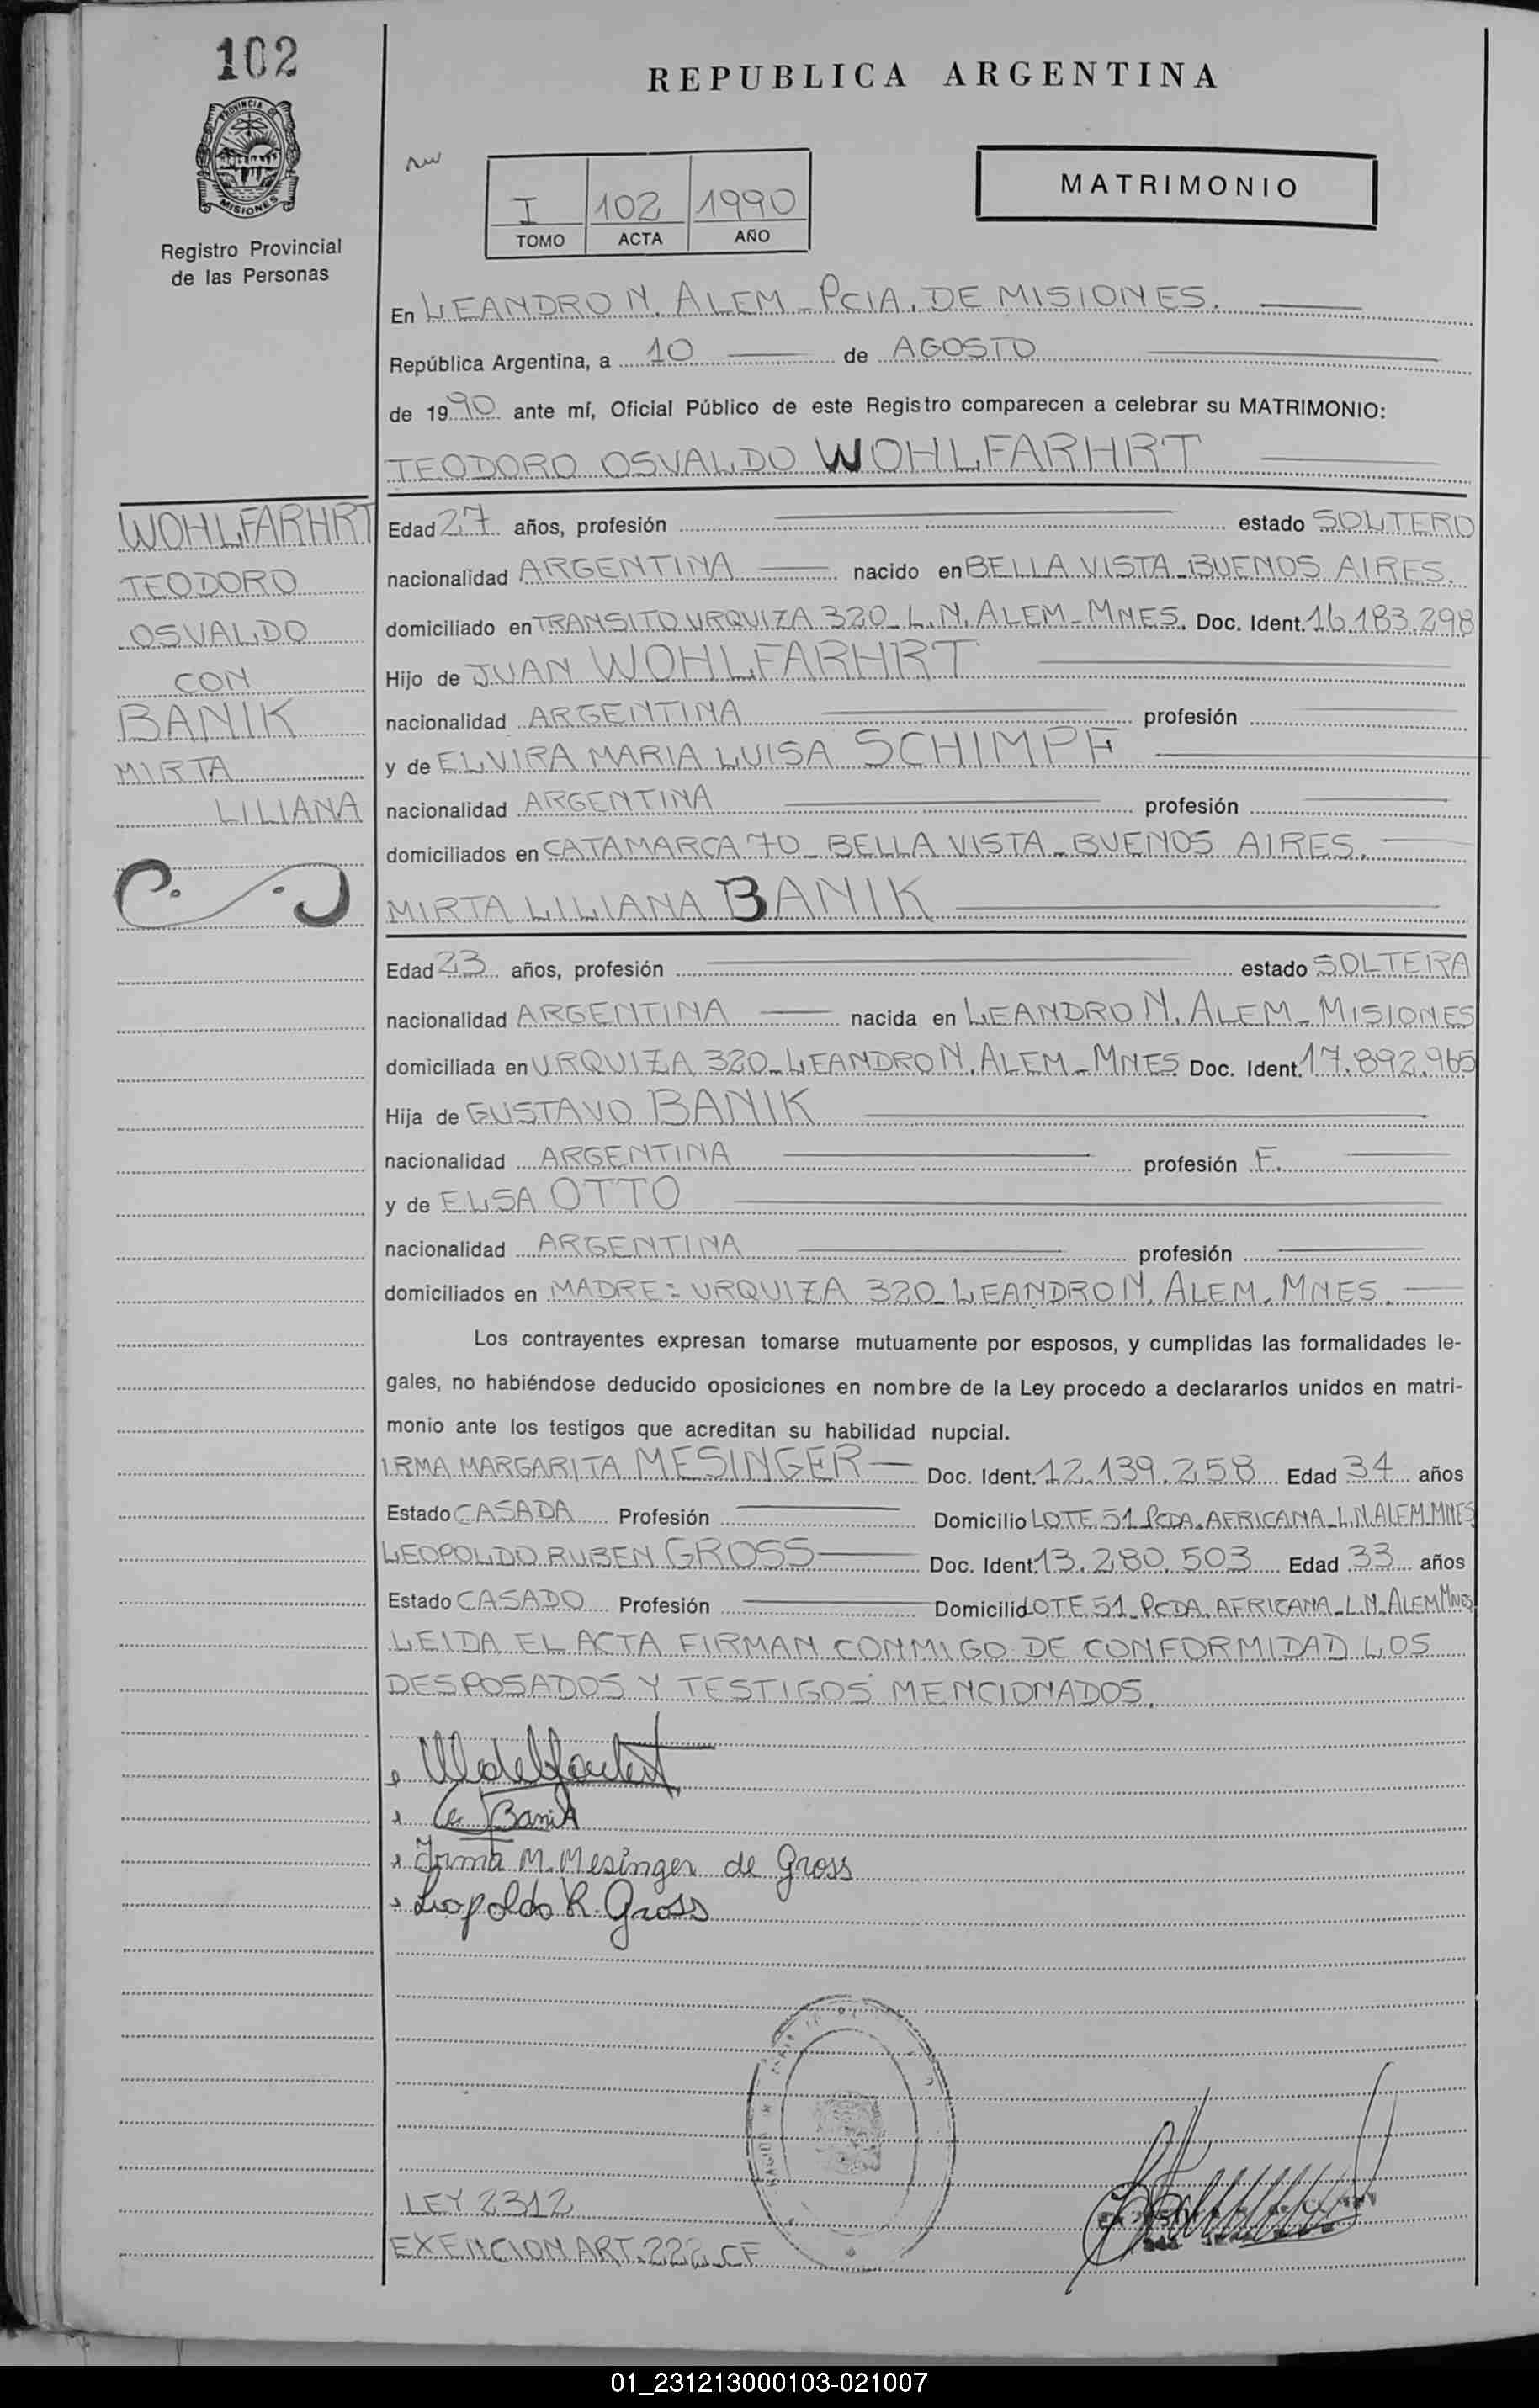 102
PROVINCIA DE
MISIONES
Registro Provincial
de las Personas
REPUBLICA ARGENTINA
MATRIMONIO
I 102 1990
TOMO ACTA AÑO
En LEANDRO N. ALEM - PCIA. DE MISIONES.
República Argentina, a 10 de AGOSTO
de 1990 ante mí, Oficial Público de este Registro comparecen a celebrar su MATRIMONIO:
TEODORO OSVALDO WOHLFARHRT
WOHLFARHRT
TEODORO
OSVALDO
CON
BANIK
MIRTA
LILIANA
Edad 27 años, profesión estado SOLTERO
nacionalidad ARGENTINA nacido en BELLA VISTA - BUENOS AIRES.
domiciliado en TRANSITO URQUIZA 320 - L.N. ALEM - MNES. Doc. Ident. 16.183.298
Hijo de JUAN WOHLFARHRT
nacionalidad ARGENTINA profesión
y de ELVIRA MARIA LUISA SCHIMPF
nacionalidad ARGENTINA profesión
domiciliados en CATAMARCA 70 - BELLA VISTA - BUENOS AIRES.
MIRTA LILIANA BANIK
Edad 23 años, profesión estado SOLTERA
nacionalidad ARGENTINA nacida en LEANDRO N. ALEM - MISIONES
domiciliada en URQUIZA 320 - LEANDRO N. ALEM - MNES. Doc. Ident. 17.892.965
Hija de GUSTAVO BANIK
nacionalidad ARGENTINA profesión F.
y de ELISA OTTO
nacionalidad ARGENTINA profesión
domiciliados en MADRE: URQUIZA 320 - LEANDRO N. ALEM. MNES.
Los contrayentes expresan tomarse mutuamente por esposos, y cumplidas las formalidades le-
gales, no habiéndose deducido oposiciones en nombre de la Ley procedo a declararlos unidos en matri-
monio ante los testigos que acreditan su habilidad nupcial.
IRMA MARGARITA MESINGER Doc. Ident. 12.139.258 Edad 34 años
Estado CASADA Profesión Domicilio LOTE 51 PCDA. AFRICANA - L.N. ALEM MNES
LEOPOLDO RUBEN GROSS Doc. Ident. 13.280.503 Edad 33 años
Estado CASADO Profesión Domicilio LOTE 51 - PCDA. AFRICANA - L.N. ALEM MNES
LEIDA EL ACTA FIRMAN CONMIGO DE CONFORMIDAD LOS
DESPOSADOS Y TESTIGOS MENCIONADOS.
Banik
Irma M. Mesinger de Gross
Leopoldo R. Gross
LEY 2312
EXENCION ART. 222 - CF
01_231213000103-021007